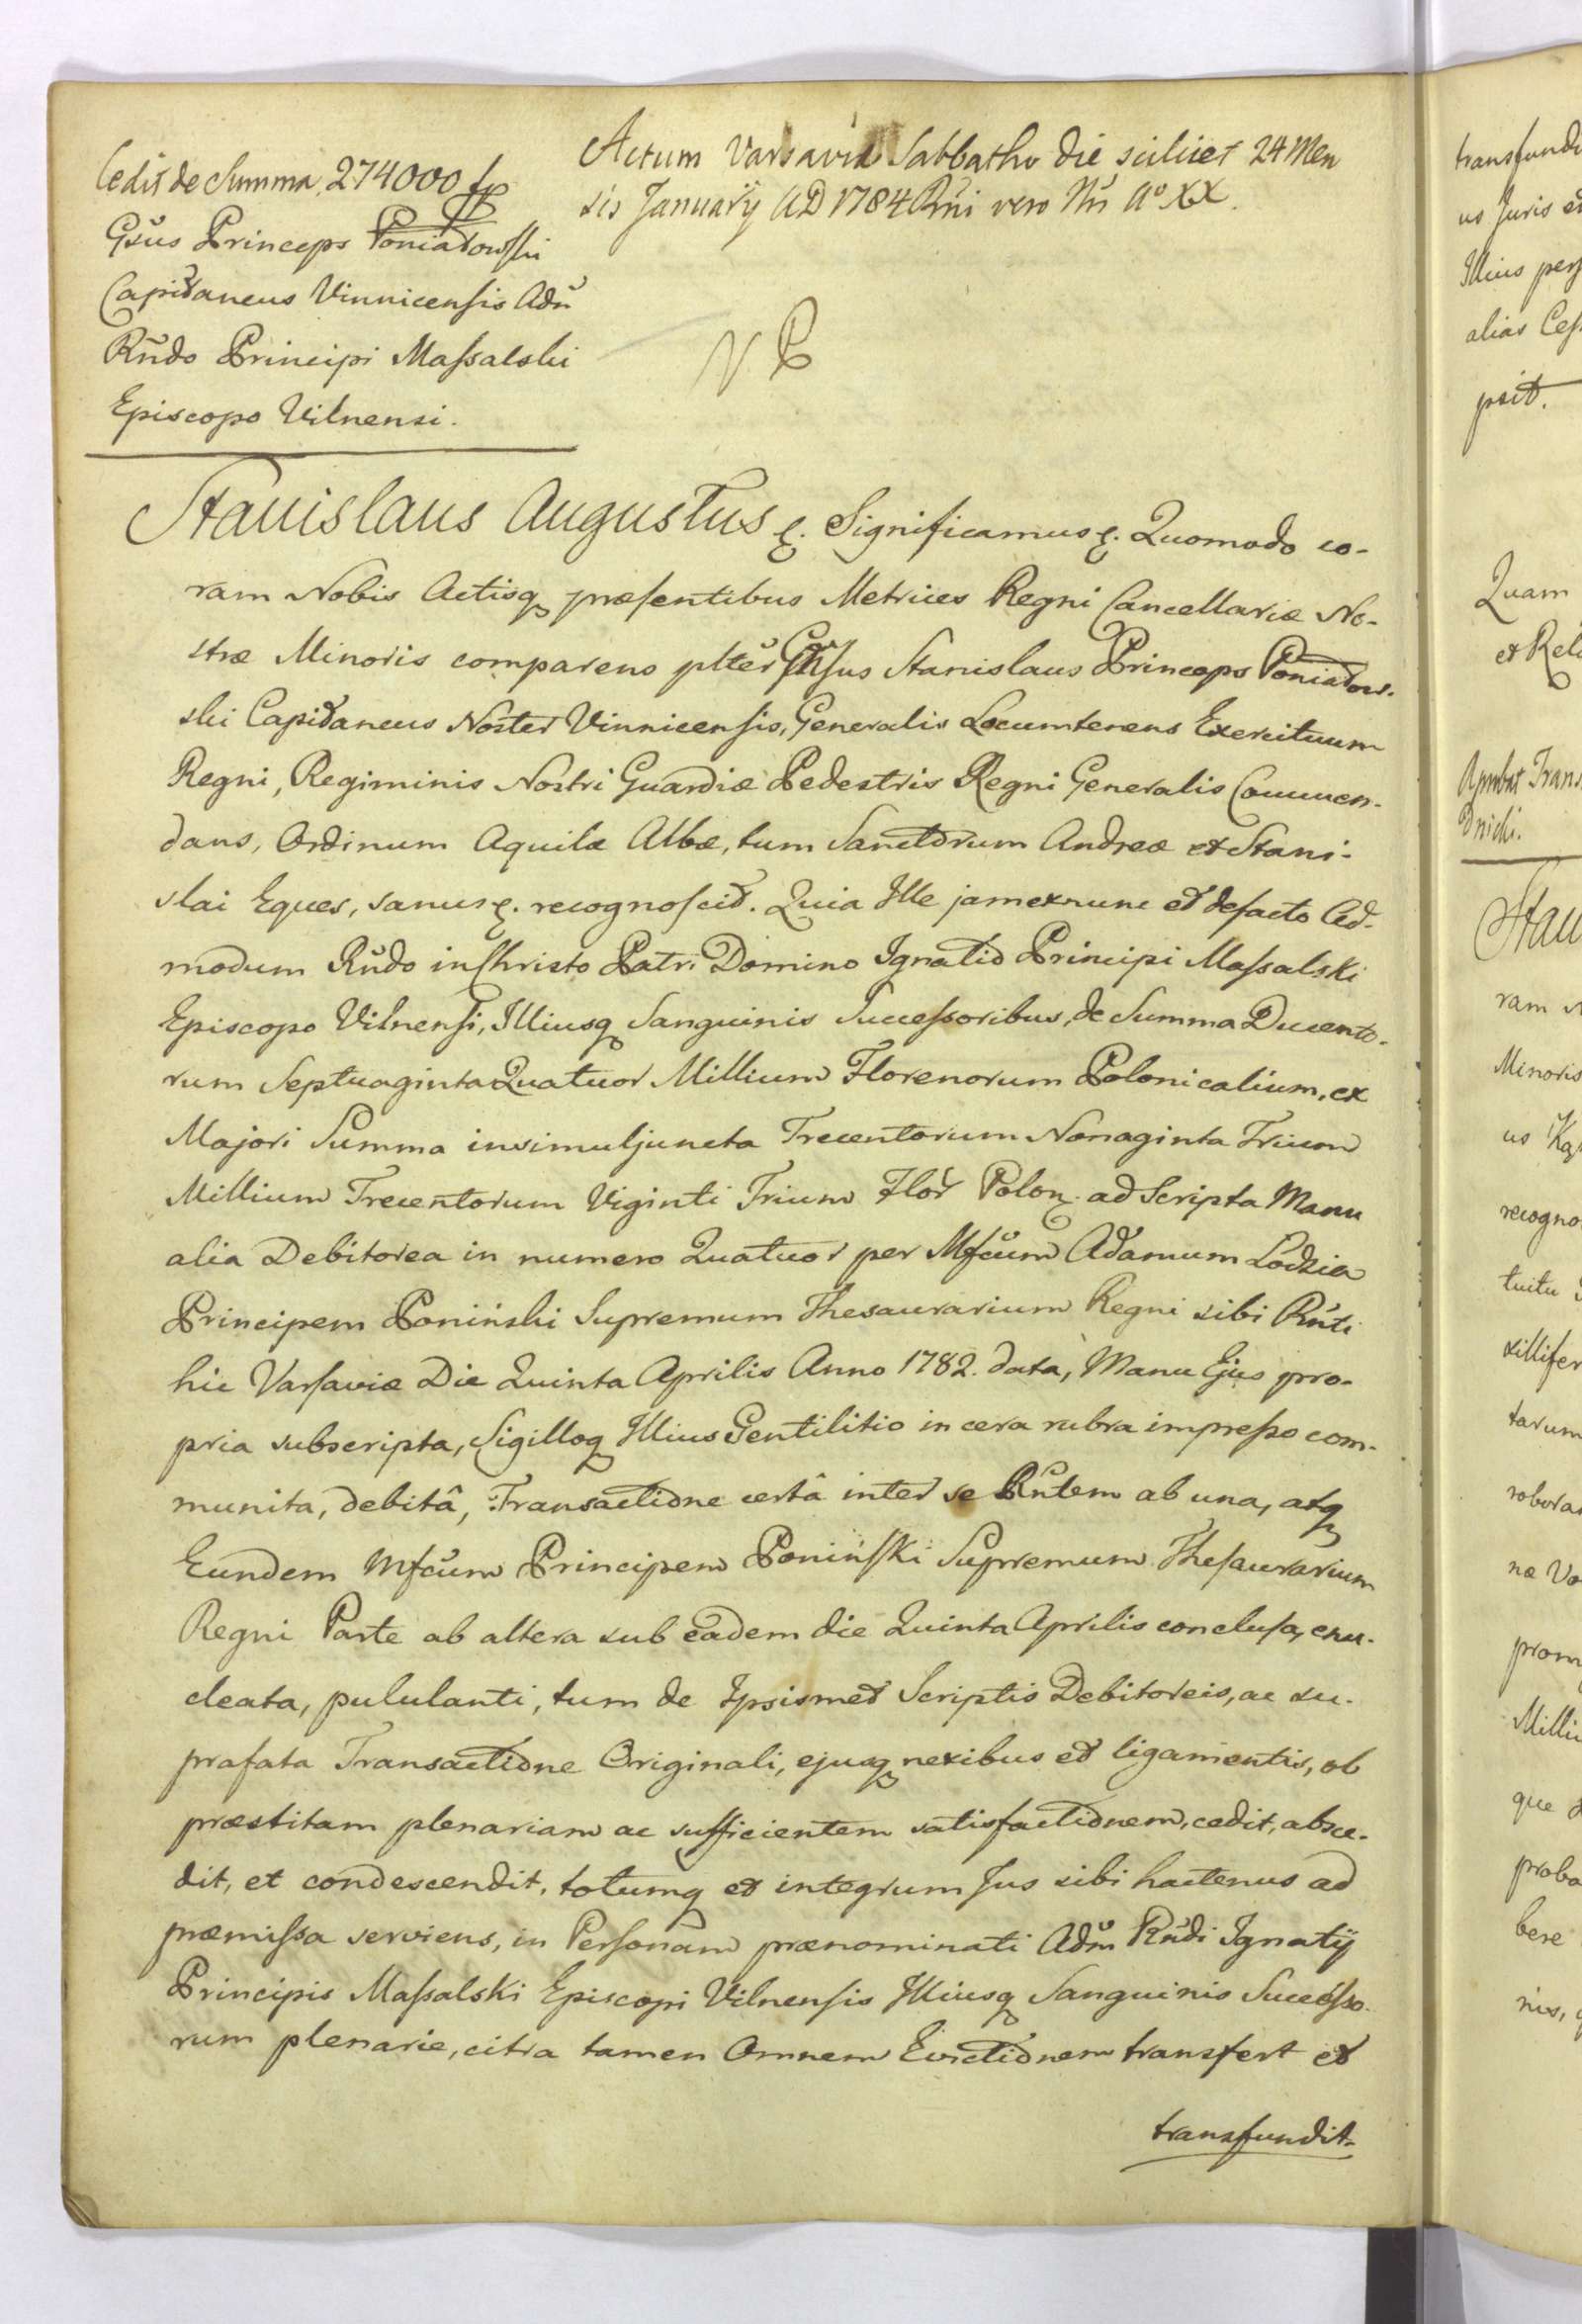 Cedit de Summa 274000 fp
Gsus Princeps Poniatowski
Capitaneus Vinnicensis Adm
Rndo Principi Massalski
Episcopo Vilnensi.
Actum Varsaviæ Sabbatho die scilicet 24 Men
sis January AD 1784 Rni vero Nri A° XX.
Stanislaus Augustus &. Significamus &. Quomodo co-
ram Nobis Actisq præsentibus Metrices Regni Cancellariæ No-
stræ Minoris comparens plter Gsus Stanislaus Princeps Poniatow-
ski Capitaneus Noster Vinnicensis, Generalis Locumtenens Exercituum
Regni, Regiminis Nostri Guardiæ Pedestris Regni Generalis Commen-
dans, Ordinum Aquilæ Albæ, tum Sanctorum Andreæ et Stani-
slai Eques, sanus &. recognoscit. Quia Ille jamexnunc et defacto Ad-
modum Rndo in Christo Patri Domino Ignatio Principi Massalski
Episcopo Vilnensi, Illiusq Sanguinis Successoribus, de Summa Ducento-
rum Septuaginta Quatuor Millium Florenorum Polonicalium, ex
Majori Summa insimuljuncta Trecentorum Nonaginta Trium
Millium Trecentorum Viginti Trium Flor Polon. ad Scripta Manu
alia Debitorea in numero Quatuor per Mfcum Adamum Lodzia
Principem Poniński Supremum Thesaurarium Regni sibi Rnti
hic Varsaviæ Die Quinta Aprilis Anno 1782. data, Manu Ejus pro-
pria subscripta, Sigilloq Illius Gentilitio in cera rubra impresso com-
munita, debitâ, Transactione certâ inter se Rntem ab una, atq
Eundem Mfcum Principem Poniński Supremum Thesaurarium
Regni Parte ab altera sub eadem die Quinta Aprilis conclusa, enu-
cleata, pululanti, tum de Ipsismet Scriptis Debitoreis, ac su-
prafata Transactione Originali, ejusq nexibus et ligamentis, ob
præstitam plenariam ac sufficientem satisfactionem, cedit, absce-
dit, et condescendit, totumq et integrum Jus sibi hactenus ad
præmissa serviens, in Personam prænominati Adm Rndi Ignatij
Principis Massalski Episcopi Vilnensis Illiusq Sanguinis Successo-
rum plenarie, citra tamen Omnem Evictionem transfert et
transfundit.
transfundi
us Juris
Illius
alias
psit.
Quam
et
Trans
Stau
ram
Minoris
us
recogno
tuitu
xillifer
tarum
robora
næ Vo
prom
Milli
que
proba
bere